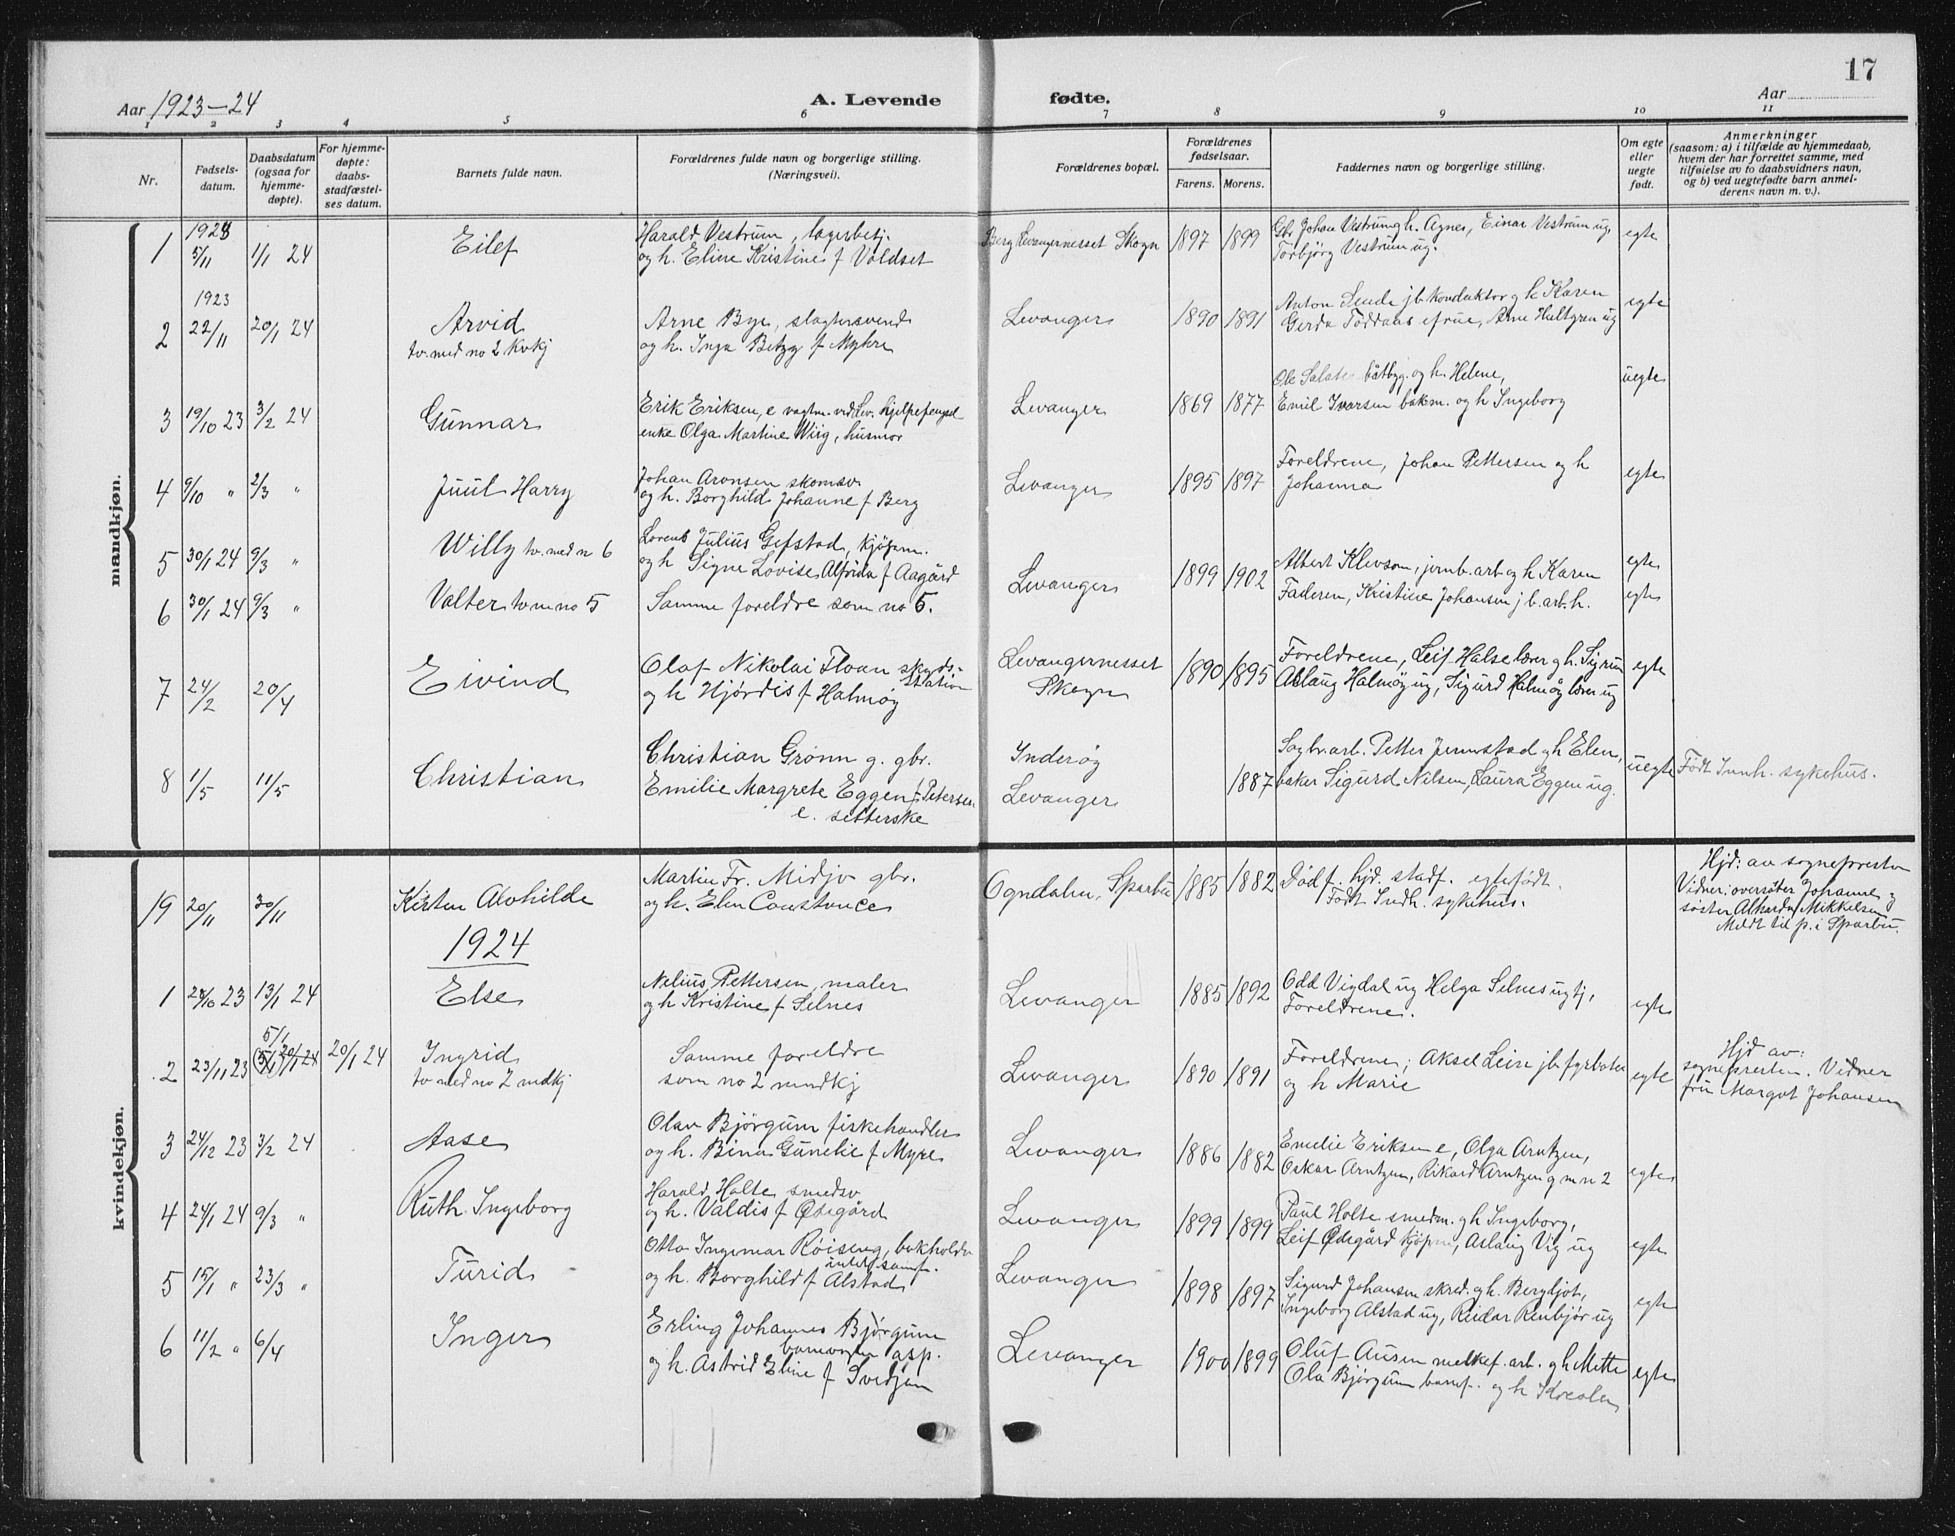 17
Aar 1923–24
A. Levende fødte.
Aar
1 2 3 4 5 6 7 8 9 10 11
Nr.
Fødsels-
datum.
Daabsdatum
(ogsaa for
hjemme-
døpte).
For hjemme-
døpte:
daabs-
stadfæstel-
ses datum.
Barnets fulde navn.
Forældrenes fulde navn og borgerlige stilling.
(Næringsvei).
Forældrenes bopæl.
Forældrenes
fødselsaar.
Farens. Morens.
Faddernes navn og borgerlige stilling.
Om egte
eller
uegte
født.
Anmerkninger
(saasom: a) i tilfælde av hjemmedaab,
hvem der har forrettet samme, med
tilføielse av to daabsvidners navn,
og b) ved uegtefødte barn anmel-
derens navn m. v.).
mandkjøn.
1 5/11 1/1 24 Eilef
Harald Vestrum, lagerbetj.
og h. Eline Kristine f Valdset
Berg Levangernesset Skogn 1897 1899
Gbr Johan Vestrum g h. Agnes, Einar Vestrum ug,
Torbjørg Vestrum ug.
egte
1923
2 22/11 20/1 24 Arvid
tv. med no 2 kvkj
Arne Bye, slagtersvend
og h. Inga Betzy f Myhre
Levanger 1890 1891
Anton Sende jb konduktor g h Karen
Gerda Toddans efrue, Arne Hultgren ug
egte
3 19/10 23 3/2 24 Gunnar
Erik Eriksen, e vagtm. ved Lev. hjelpefengsel
enke Olga Martine Wiig, husmor
Levanger 1869 1877
Ole Salate båtbyg. og h. Helene,
Emil Ivarsen bakm. og h Ingeborg
uegte
4 9/10 " 2/3 " Juul Harry
Johan Aronsen skomsv
og h. Borghild Johanne f Berg
Levanger 1895 1897
Foreldrene, Johan Pettersen og h
Johanna
egte
5 30/1 24 9/3 " Willy tv. med n 6
Lorens Julius Gefstad, kjøpm.
og h Signe Lovise Alfrida f Aagård
Levanger 1899 1902
Albert Klevson, jernb. arb og h Karen
egte
6 30/1 24 9/3 " Valter tv m no 5
Samme foreldre som no 5.
Faderen, Kristine Johansen j b. arb. h.
egte
7 24/2 20/4 Eivind
Olaf Nikolai Floan skyds-
station
og h Hjørdis f Halmøy
Levangernesset
Skogn
1890 1895
Foreldrene, Leif Halse lærer g h. Sigrun
Aslaug Halmøy ug, Sigurd Halmøy lærer ug
egte
8 1/5 11/5 Christian
Christian Grønn g. gbr.
Emilie Margrete Eggen f Petersen
e. setterske
Inderøy
Levanger
1887
Sagbr. arb. Petter Jermstad g h Elen,
baker Sigurd Nilsen, Laura Eggen ug.
uegte Født Innh. sykehus.
kvindekjøn.
19 20/11 30/11 Kirsten Alvhilde
Martin Fr. Midjo gbr.
og h. Elen Constance
Ogndalen, Sparbu 1885 1882
Død f. hjd. stadf. egtefødt.
Født Indh. sykehus.
Hjd: av sognepresten
Vidner: oversøster Johanne og
søster Alharda Mikkelsen
Meldt til p. i Sparbu.
1924
1 28/10 23 13/1 24 Else
Nelius Pettersen, maler
og h Kristine f Selnes
Levanger 1885 1892
Odd Vigdal ug Helga Selnes ug tj,
Foreldrene.
egte
2 23/11 23 5/1 20/1 24 20/1 24 Ingrid
tv med no 2 mdkj
Samme foreldre
som no 2 mndkj
Levanger 1890 1891
Foreldrene; Aksel Lein jb fyrbøter
og h Marie
egte
Hjd av:
sognepresten. Vidner
fru Margot Johansen
3 24/12 23 3/2 24 Aase
Olav Bjørgum fiskehandler
og h. Bina Gunelie f Myre
Levanger 1886 1882
Emelie Eriksen e, Olga Arntzen,
Oskar Arntzen, Rikard Arntzen g m n 2
egte
4 24/1 24 9/3 " Ruth Ingeborg
Harald Holte smedsv
og h. Valdis f Ødegård
Levanger 1899 1899
Paul Holte smedm. g h Ingeborg,
Leif Ødegård kjøpm, Aslaug Vig ug
egte
5 15/1 " 23/3 " Turid
Otto Ingemar Røiseng, bokholder
og h. Borghild f Alstad
Levanger 1898 1897
Sigurd Johansen skred. g h. Bergljot,
Ingeborg Alstad ug, Reidar Renbjør ug
egte
6 11/2 " 6/4 Inger
Erling Johannes Bjørgum
banevogter asp.
og h. Astrid Eline f Svedjan
Levanger 1900 1899
Oluf Ausen melkef. arb. g h Mette
Ola Bjørgum banef. og h
egte